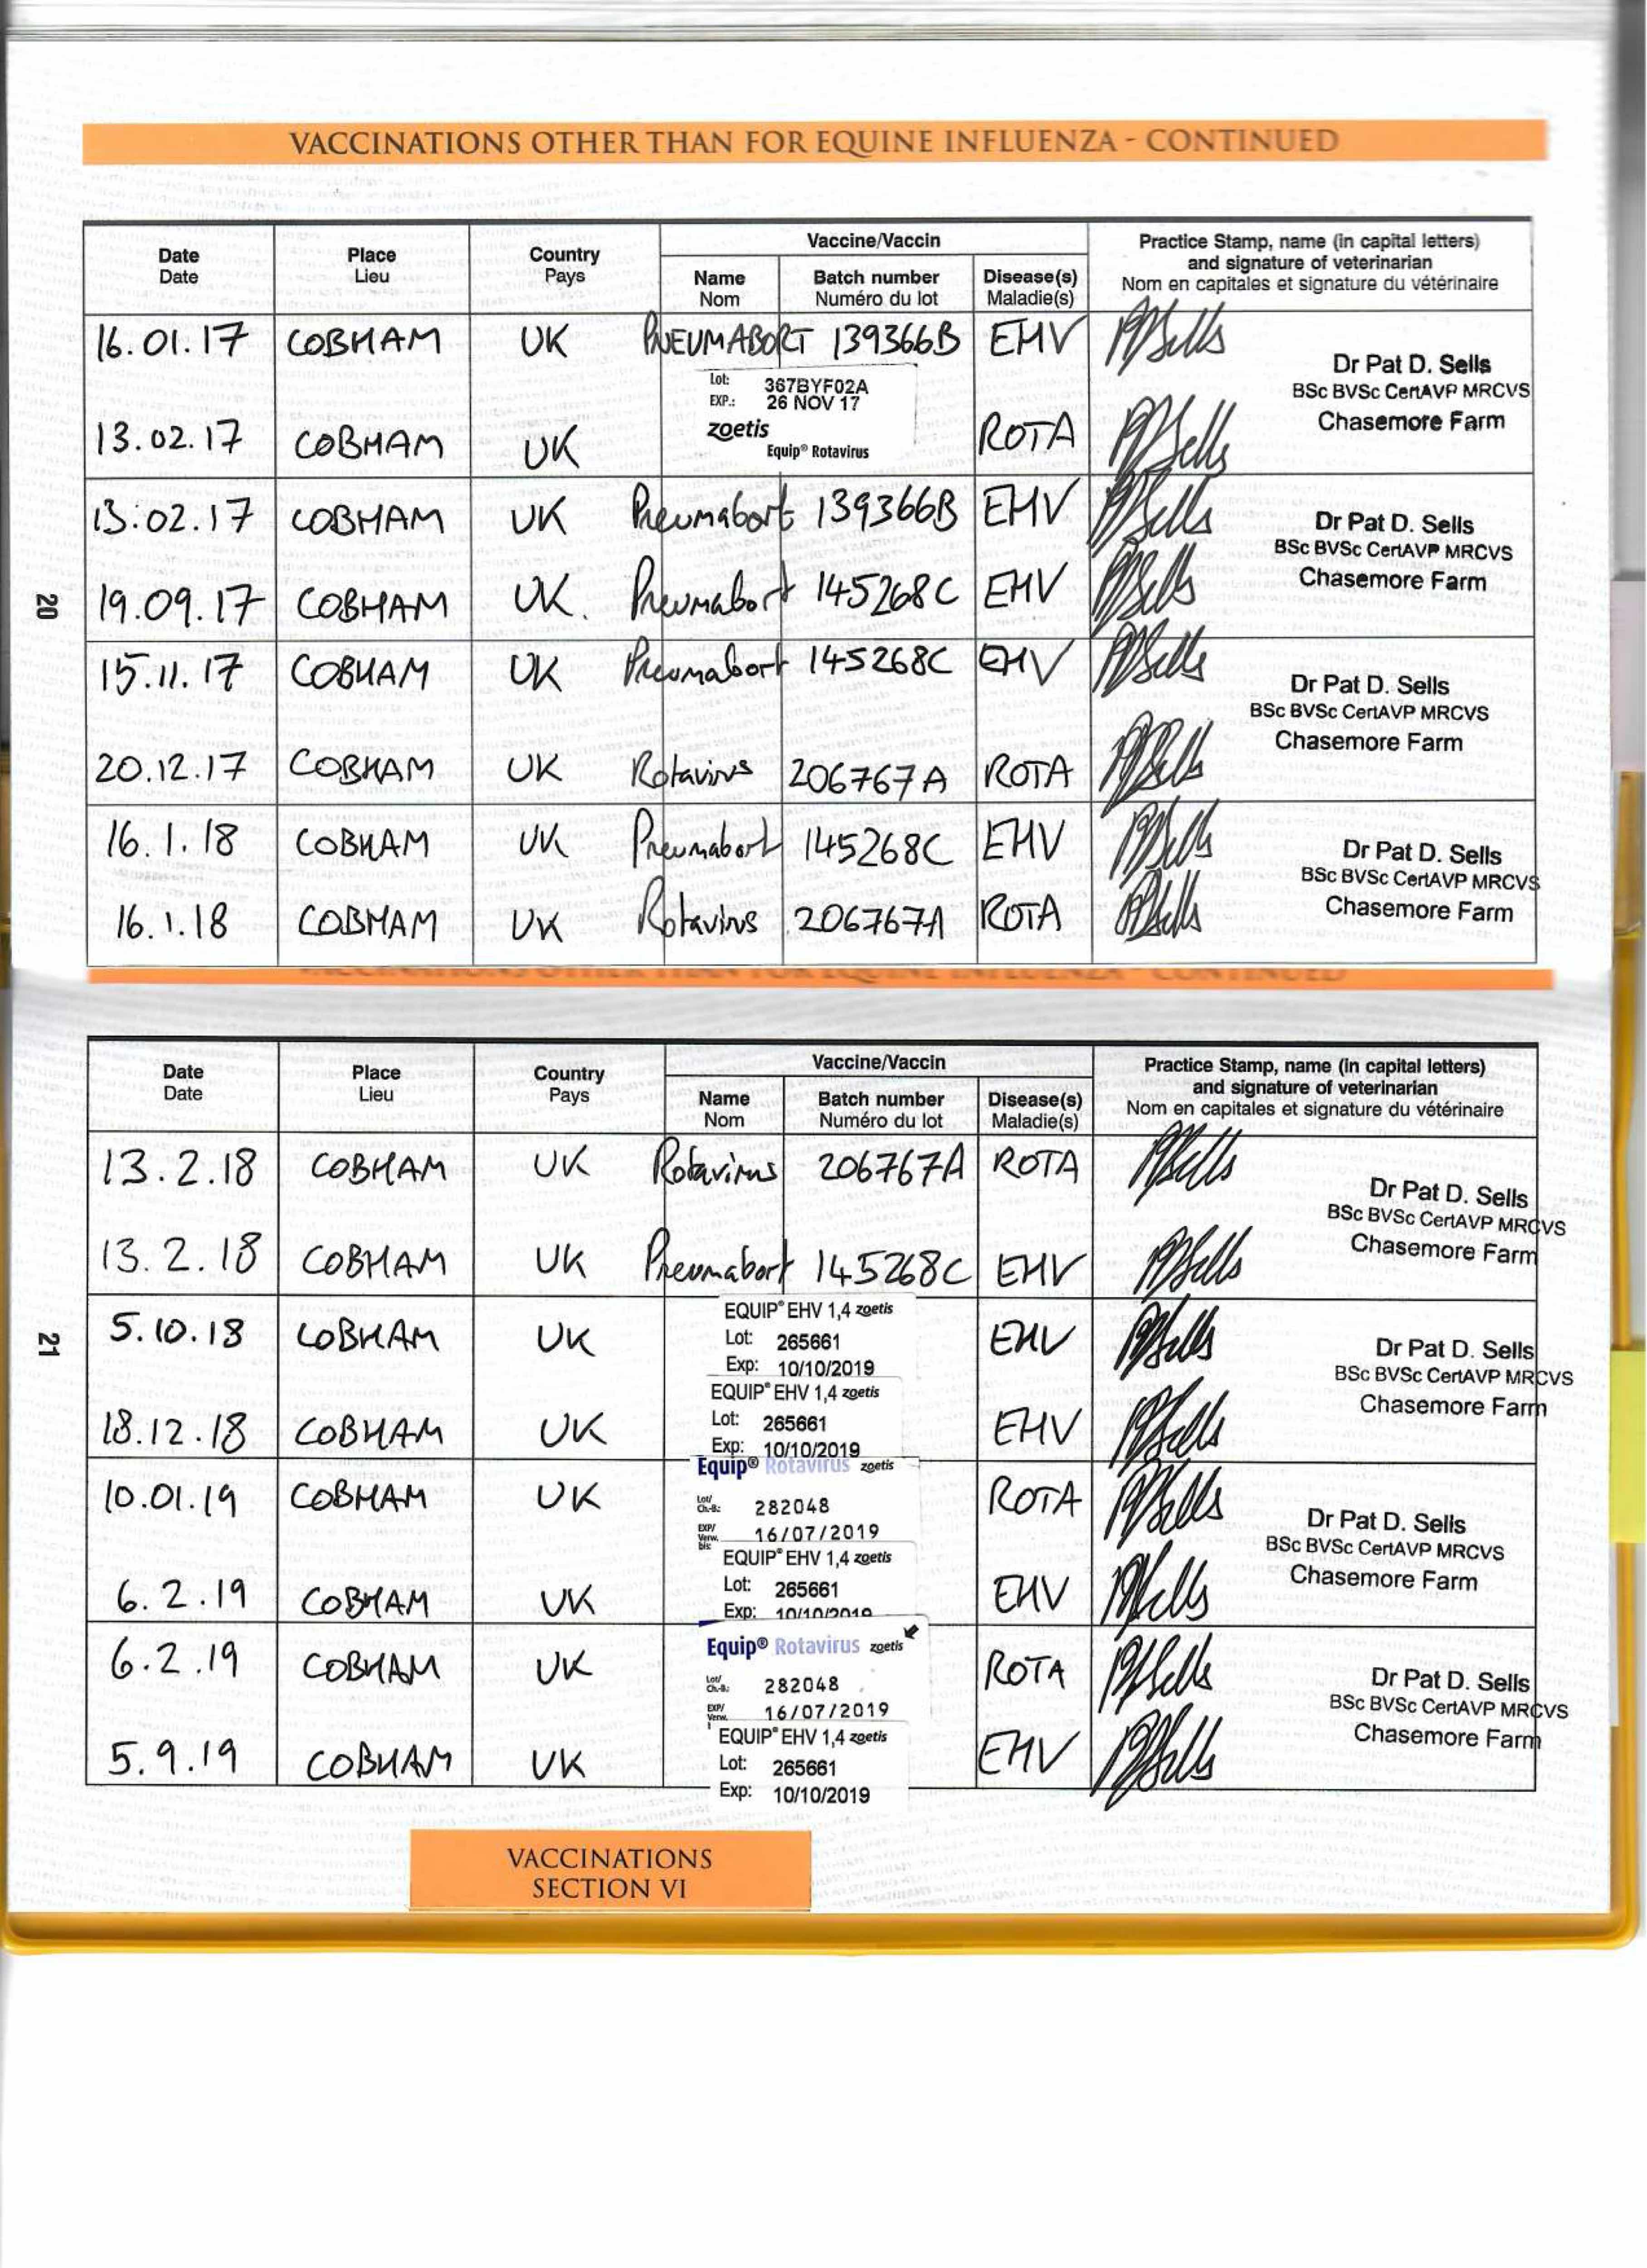 VACCINATIONS OTHER THAN FOR EQUINE INFLUENZA - CONTINUED
Date Place Country Vaccine/Vaccin Practice Stamp, name (in capital letters)
Date Lieu Pays Name Batch number Disease(s) and signature of veterinarian
Nom Numéro du lot Maladie(s) Nom en capitales et signature du vétérinaire
16.01.17 COBHAM UK PNEUMABORT 139366B EHV PDSells
Dr Pat D. Sells
BSc BVSc CertAVP MRCVS
Chasemore Farm
Lot: 367BYF02A
EXP.: 26 NOV 17
zoetis
Equip® Rotavirus
13.02.17 COBHAM UK ROTA PDSells
13.02.17 COBHAM UK Pneumabort 139366B EHV PDSells
Dr Pat D. Sells
BSc BVSc CertAVP MRCVS
Chasemore Farm
20
19.09.17 COBHAM UK. Pneumabort 145268C EHV PDSells
15.11.17 COBHAM UK Pneumabort 145268C EHV PDSells
Dr Pat D. Sells
BSc BVSc CertAVP MRCVS
Chasemore Farm
20.12.17 COBHAM UK Rotavirus 206767A ROTA PDSells
16.1.18 COBHAM UK Pneumabort 145268C EHV PDSells
Dr Pat D. Sells
BSc BVSc CertAVP MRCVS
Chasemore Farm
16.1.18 COBHAM UK Rotavirus 206767A ROTA PDSells
Date Place Country Vaccine/Vaccin Practice Stamp, name (in capital letters)
Date Lieu Pays Name Batch number Disease(s) and signature of veterinarian
Nom Numéro du lot Maladie(s) Nom en capitales et signature du vétérinaire
13.2.18 COBHAM UK Rotavirus 206767A ROTA PDSells
Dr Pat D. Sells
BSc BVSc CertAVP MRCVS
Chasemore Farm
13.2.18 COBHAM UK Pneumabort 145268C EHV PDSells
21
5.10.18 COBHAM UK EHV PDSells
EQUIP® EHV 1,4 zoetis
Lot: 265661
Exp: 10/10/2019
Dr Pat D. Sells
BSc BVSc CertAVP MRCVS
Chasemore Farm
18.12.18 COBHAM UK EHV PDSells
EQUIP® EHV 1,4 zoetis
Lot: 265661
Exp: 10/10/2019
10.01.19 COBHAM UK ROTA PDSells
Equip® Rotavirus zoetis
Lot/ Ch.-B.: 282048
EXP/ Verw. bis: 16/07/2019
Dr Pat D. Sells
BSc BVSc CertAVP MRCVS
Chasemore Farm
6.2.19 COBHAM UK EHV PDSells
EQUIP® EHV 1,4 zoetis
Lot: 265661
Exp: 10/10/2019
6.2.19 COBHAM UK ROTA PDSells
Equip® Rotavirus zoetis
Lot/ Ch.-B.: 282048
EXP/ Verw. 16/07/2019
Dr Pat D. Sells
BSc BVSc CertAVP MRCVS
Chasemore Farm
5.9.19 COBHAM UK EHV PDSells
EQUIP® EHV 1,4 zoetis
Lot: 265661
Exp: 10/10/2019
VACCINATIONS
SECTION VI